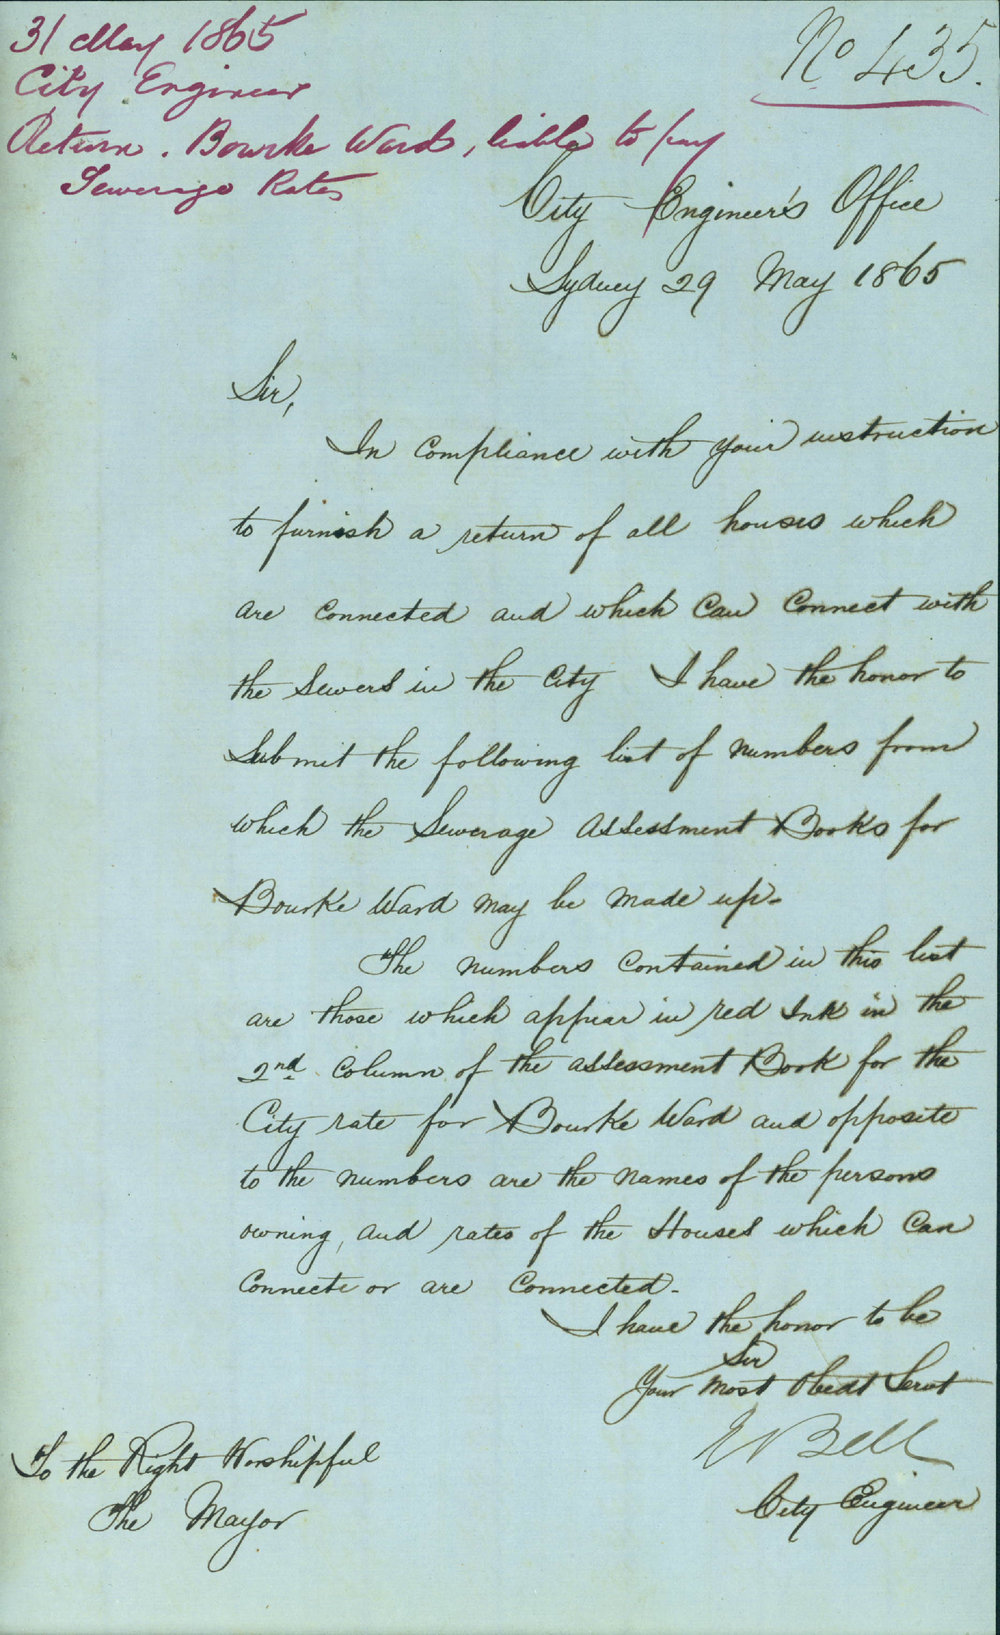 31 May 1865
City Engineer
Return. Bourke Ward, liable to pay
Sewerage Rates
No 435.
City Engineer's Office
Sydney 29 May 1865
Sir,
In compliance with your instruction
to furnish a return of all houses which
are connected and which can connect with
the Sewers in the City I have the honor to
Submit the following list of numbers from
which the Sewerage Assessment Books for
Bourke Ward may be made up-
The numbers contained in this list
are those which appear in red Ink in the
2nd column of the assessment Book for the
City rate for Bourke Ward and opposite
to the numbers are the names of the persons
owning, and rates of the Houses which can
Connect or are connected-
I have the honor to be
Sir
Your most Obedt Servt
E Bell
City Engineer
To the Right Worshipful
The Mayor